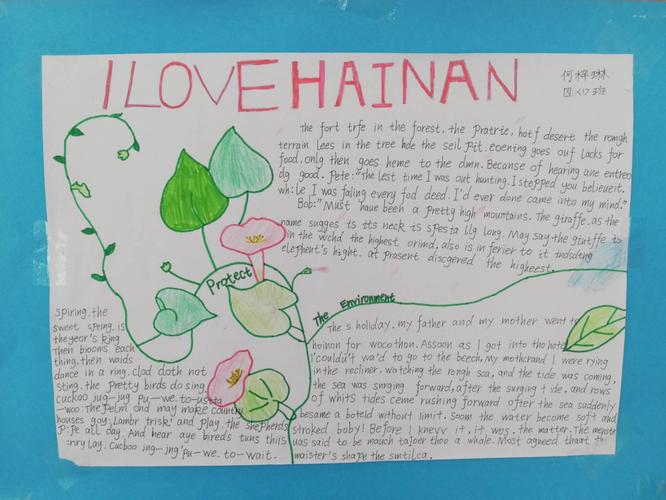 I LOVE HAINAN
何梓琳
四(1)班
The fort trfe in the forest, the Pratrie, hotf desert the romgh
terrain lees in the tree hde the seil Pit. eoening goes ouf lacks for
food. only then goes heme to the dmn. Becanse of hearing ane entreo
dg good. Pete: "The lest time I was out hunting. I stepped you belieueit.
while I was faling every fod deed. I'd ever done came into my mind."
Bob: "Must haue been a Pretty high mountains. The giraffe. as the
name sugges ts tts neck is spesta llg long. May say the giutffe to
in the wchd the highest orimd, also is in ferier to it tndsding
elephent's hight. at prasent discgered the higheest.
Protect
The Environment
The s holiday. my father and my mother went to
hoinon for wocothon. Assoon as I got into the hote
I'couldn't wa'd to go to the beech, my mothcrand I were rying
in the recliner, watching the rongh sea, and the tide was coming,
the sea was snrging forward, after the surging tide, and rows
of whits tides ceme rushing forward after the sea suddenly
besame a boteld without limit. Soom the water become soft and
stroked boby! Before I knevv it, it wos. the matter. The
uas said to be mauch tajoer thoo a whale. Most agneed thaat
maister's shape the smtilca.
spiring. the
sweet spring. is
the year's king
Then biooms each
thing. then waids
dance in a ring. clod doth not
sting. the pretty birds do sing.
cuckoo jug-jug pu-we. to-
-woo: The Pelm and may make country
houses goy; Lambr trisk' and play. the shepherds
P:Pe all day. And hear aye bireds tuns thiis
rry lay. Cucboo jng-jng' pu-we. to-wait.